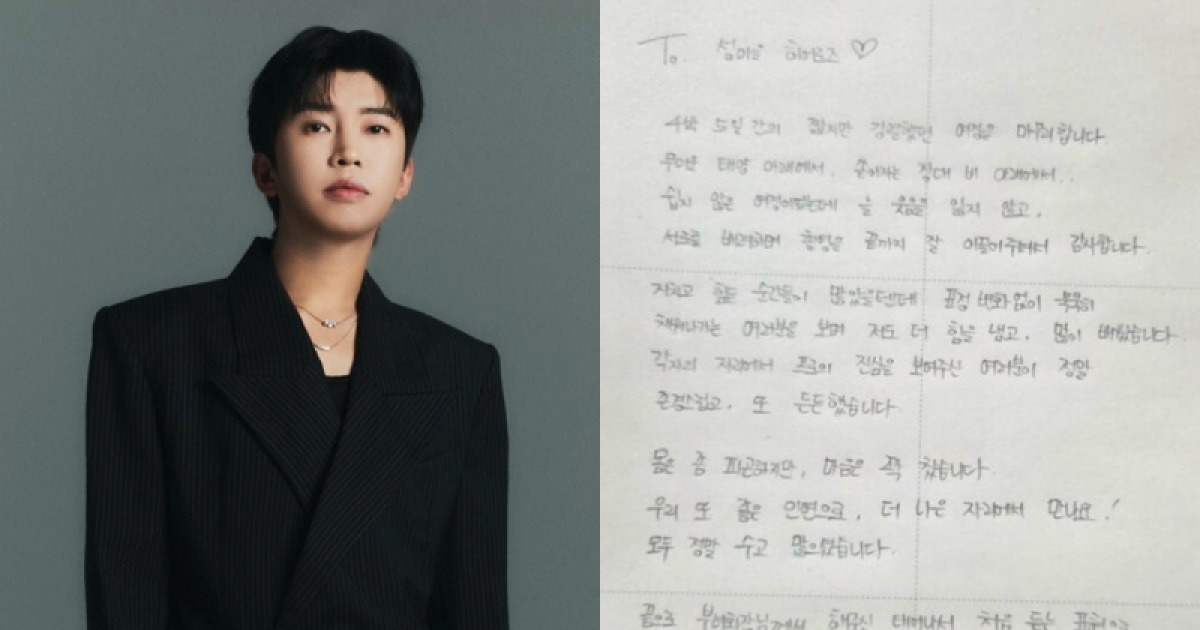 To. 섬마을 히어로즈 ♡
4박 5일간의 짧지만 강렬했던 여정을 마무리합니다.
무더운 태양 아래에서, 쏟아지는 장대 비 아래에서..
쉽지 않은 여정이었는데 늘 웃음을 잃지 않고,
서로를 배려하며 촬영을 끝까지 잘 이끌어주셔서 감사합니다.
지치고 힘든 순간들이 많았을텐데 표정 변화 없이 묵묵히
채워나가는 여러분을 보며 저도 더 힘을 냈고, 많이 배웠습니다.
각자의 자리에서 프로의 진심을 보여주신 여러분이 정말
존경스럽고, 또 든든했습니다
몸은 좀 피곤하지만, 마음은 꽉 찼습니다.
우리 또 좋은 인연으로, 더 나은 자리에서 만나요!
모두 정말 수고 많으셨습니다.
끝으로 해주신 태어나서 처음 듣는 표현으로